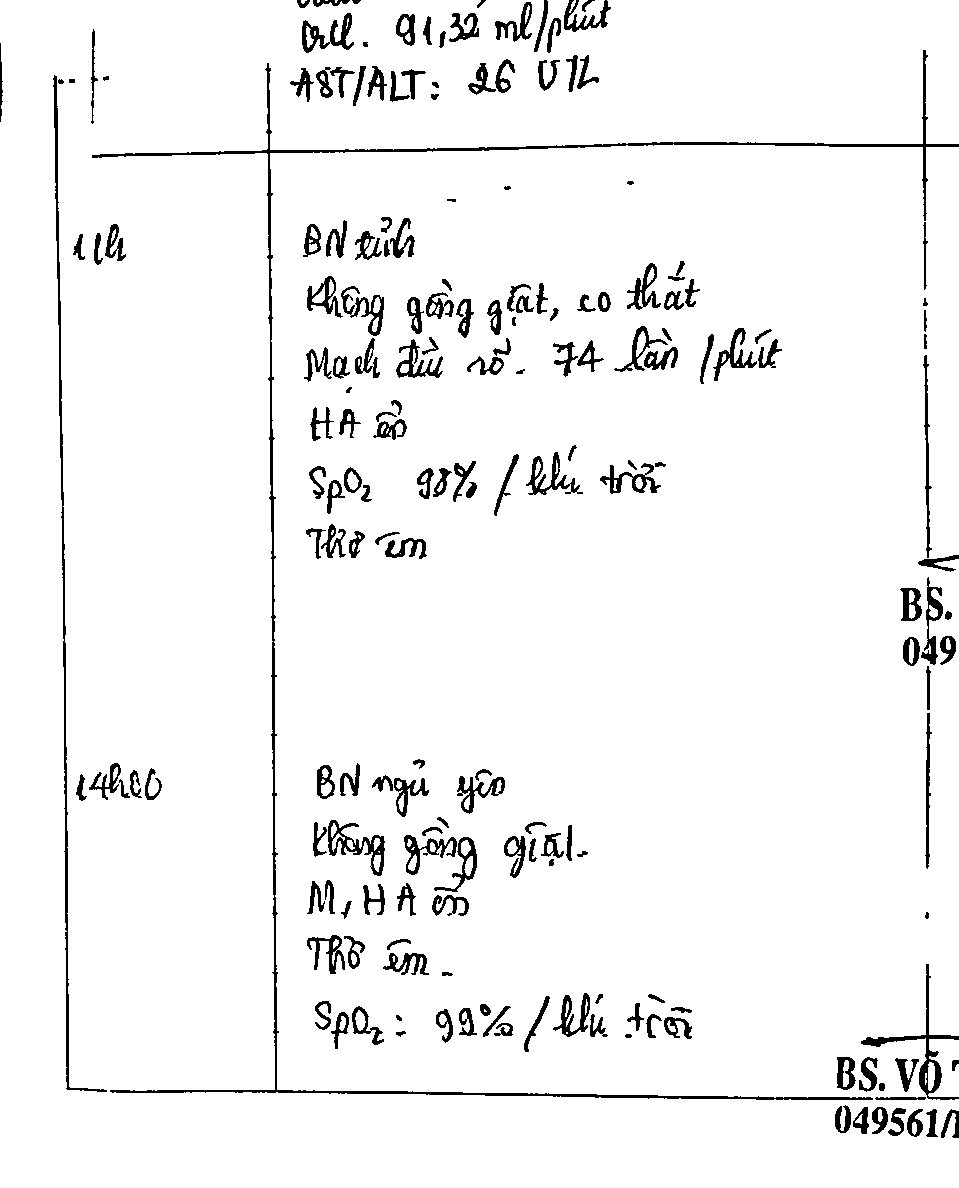 CrCl. 91,32 ml/phút
AST/ALT: 26 U/L
11h
BN tỉnh
Không gồng giật, co thắt
Mạch đều rõ. 74 lần/phút
HA ổn
SpO₂ 98% / khí trời
Thở êm
BS.
049
14h00
BN ngủ yên
Không gồng giật.
M, HA ổn
Thở êm.
SpO₂: 99% / khí trời
BS. VÕ T
049561/